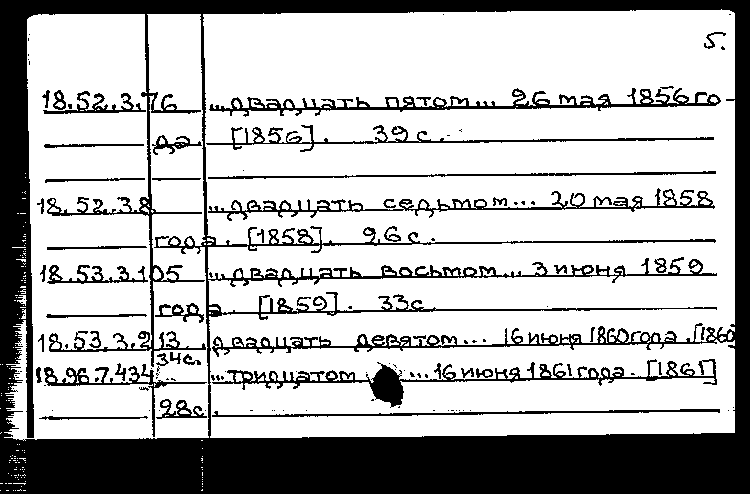 5.
18.52.3.76 ...двадцать пятом... 26 мая 1856 го-
да. [1856]. 39 с.
18.52.3.8 ...двадцать седьмом... 20 мая 1858
года. [1858]. 26 с.
18.53.3.105 ...двадцать восьмом... 3 июня 1859
года. [1859]. 33 с
18.53.3.213 ...двадцать девятом... 16 июня 1860 года. [1860]
34 с.
18.96.7.434 ...тридцатом ...16 июня 1861 года. [1861]
28 с.